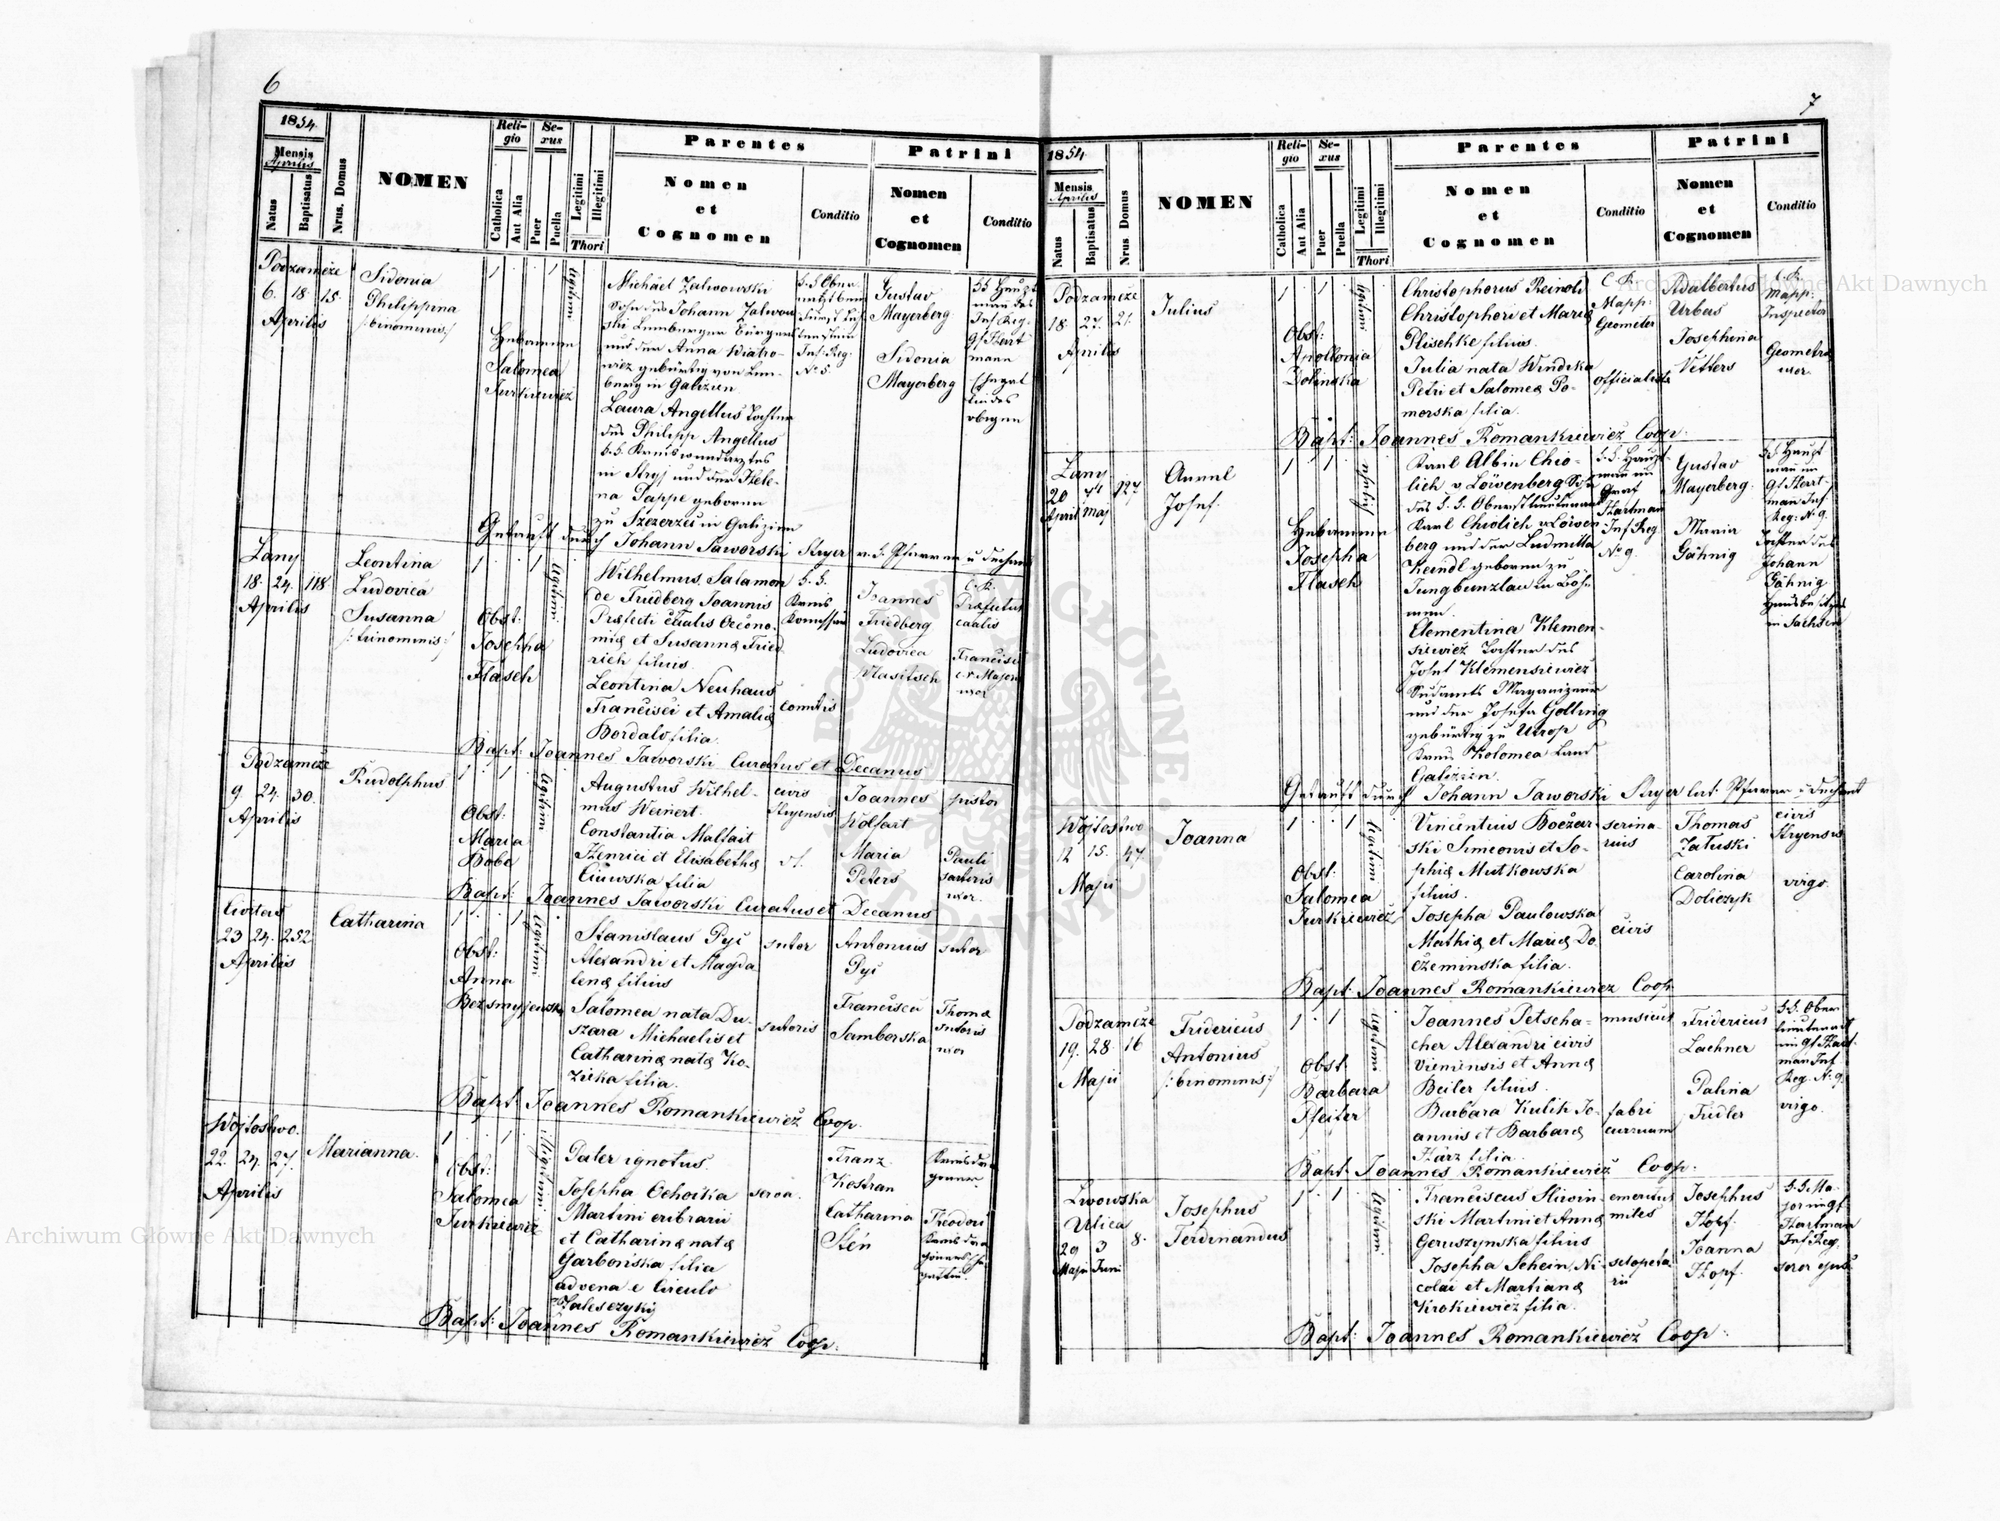 6
1854
Mensis
Aprilis
Natus
Baptisatus
Nrus. Domus
NOMEN
Reli-
gio
Catholica
Aut Alia
Se-
xus
Puer
Puella
Legitimi
Illegitimi
Thori
Parentes
Nomen
et
Cognomen
Conditio
Patrini
Nomen
et
Cognomen
Conditio
Podzamcze
6. 18. 15.
Aprilis
Sidonia
Philippina
/:binominis:/
1 1
Hebamme
Salomea
Jurkiewicz
Michael Zalwowski
Sohn des Johann Zalwow
ski Lemberger Bürgers
und der Anna Wiatro-
wicz gebürtig von Lem-
berg in Galizien
Laura Angellus Tochter
des Philipp Angellus
k.k. Kreiswundarztes
in Stryj und der Hele-
na Pappe geboren
zu Szczerzec in Galizien
Gustav
Mayerberg
Sidonia
Mayerberg
Getauft durch Johann Jaworski Stryer r. l. Pfarrer u Dechant
Lany
18. 24. 118
Aprilis
Leontina
Ludovica
Susanna
/:trinominis:/
1 1
Obst:
Josepha
Flasch
Wilhelmus Salamon
de Friedberg Joannis
Praefecti caalis Oecono-
miae et Susannae Fried
rich filius.
Leontina Neuhaus
Francisci et Amaliae
Bordalo filia.
k.k.
Kreis
Komissär
Comitis
Joannes
Friedberg
Ludovica
Wlasitsch
C. R.
Praefectus
caalis
Francisci
c. r. Majoris
uxor
Bapt: Joannes Jaworski Curatus et Decanus
Podzamcze
9 24. 30.
Aprilis
Rudolphus
1 1
Obst:
Maria
Bobo
Augustus Wilhel-
mus Weinert
Constantia Malfait
Henrici et Elisabethae
Ciuwska filia
civis
Stryensis
Joannes
Wolfart
Maria
Peters
pistor
Pauli
sartoris
uxor.
Bapt: Joannes Jaworski Curatus et Decanus
23 24. 252
Aprilis
Catharina
1 1
Obst:
Anna
Stanislaus Pyć
Alexandri et Magda
lenae filius
Salomea nata Du-
szara Michaelis et
Catharinae natae Ko-
zicka filia.
sutor
sutoris
Antonius
Pyć
Francisca
Samborska
sutor
Thomae
sutoris
uxor
Bapt: Joannes Romankiewicz Coop.
Wojtostwo.
22. 24. 27.
Aprilis
Marianna.
1 1
Obst:
Salomea
Jurkiewicz
Pater ignotus.
Josepha Ochocka
Martini cribrarii
et Catharinae natae
Garbońska filia
advena e Circulo
Zalesczyki
serva.
Franz
Kostran
Catharina
Sten
Theodori
Bapt: Joannes Romankiewicz Coop.
7
1854
Mensis
Aprilis
Natus
Baptisatus
Nrus Domus
NOMEN
Reli-
gio
Catholica
Aut Alia
Se-
xus
Puer
Puella
Legitimi
Illegitimi
Thori
Parentes
Nomen
et
Cognomen
Conditio
Patrini
Nomen
et
Cognomen
Conditio
Podzamcze
18. 27. 21.
Aprilis
Julius
1 1
Obst:
Apollonia
Dolinska
Christophorus Reinold
Christophori et Mariae
Plischke filius.
Julia nata Windika
Petri et Salomeae Po-
morska filia.
C. R.
Mapp:
Geometer
officialistae
Adalbertus
Urbas
Josephina
Vetters
C. R.
Mapp:
Inspector
Geometrae
uxor.
Bapt: Joannes Romankiewicz Coop.
Lany
20 7 127
April Maj
Josef.
1 1
Hebamme
Josepha
Flasch
Karl Albin Chio-
lich v Löwenberg Sohn
des k. k. Oberstlieutenants
Karl Chiolich v Löwen
berg und der Ludmilla
Heindl geboren zu
Jungbunzlau in Böh-
men.
Clementina Klemen-
siewicz Tochter des
Josef Klemensiewicz
und der Josefa Golling
gebürtig zu Utrop
Kreis Kolomea Land
Galizien.
k.k. Haupt-
mann im
Graf
Hartman
Inf. Reg
No 9.
Gustav
Mayerberg
Maria
Gähnig
k.k. Haupt
mann im
Gf Hart-
man Inf
Reg: N. 9.
Tochter des
Johann
Gähnig
in Sachsen
Getauft durch Johann Jaworski Stryer lat. Pfarrer u Dechant
Wojtostwo
12 15. 47.
Maji
Joanna
1 1
Obst:
Salomea
Jurkiewicz
Vincentius Boczar-
ski Simeonis et So-
phiae Mutkowska
filius.
Josepha Paulowska
Mathiae et Mariae Do
czeminska filia.
scrina-
rius
civis
Thomas
Zaluski
Carolina
Doliczyk
civis
Stryensis
virgo.
Bapt: Joannes Romankiewicz Coop
Podzamcze
19. 28. 16
Maji
Fridericus
Antonius
/:binominis:/
1 1
Obst
Barbara
Pfeiler
Joannes Petscha-
cher Alexandri civis
Viennensis et Annae
Beiler filius.
Barbara Kulik Jo-
annis et Barbarae
Harz filia.
musicus
fabri
curruum
Fridericus
Lachner
Palina
Fridler
k.k. Ober
lieutenant
im Gf. Hart-
man Inf
Reg. N. 9.
virgo.
Bapt: Joannes Romankiewicz Coop:
Lwowska
Ulica
29 3 8.
Maji Juni
Josephus
Ferdinandus
1 1
Franciscus Sliwin-
ski Martini et Annae
Geruszynska filius
Josepha Schein, Ni-
colai et Martianae
Krokiewicz filia.
emeritus
miles
sclopeta-
rii
Josephus
Hopf.
Joanna
Hopf.
k.k. Ma-
jor im Gf.
Hartman
Inf. Reg.
soror ejus
Bapt: Joannes Romankiewicz Coop:
Archiwum Główne Akt Dawnych
Archiwum Główne Akt Dawnych
ARCHIWUM GŁÓWNE AKT DAWNYCH